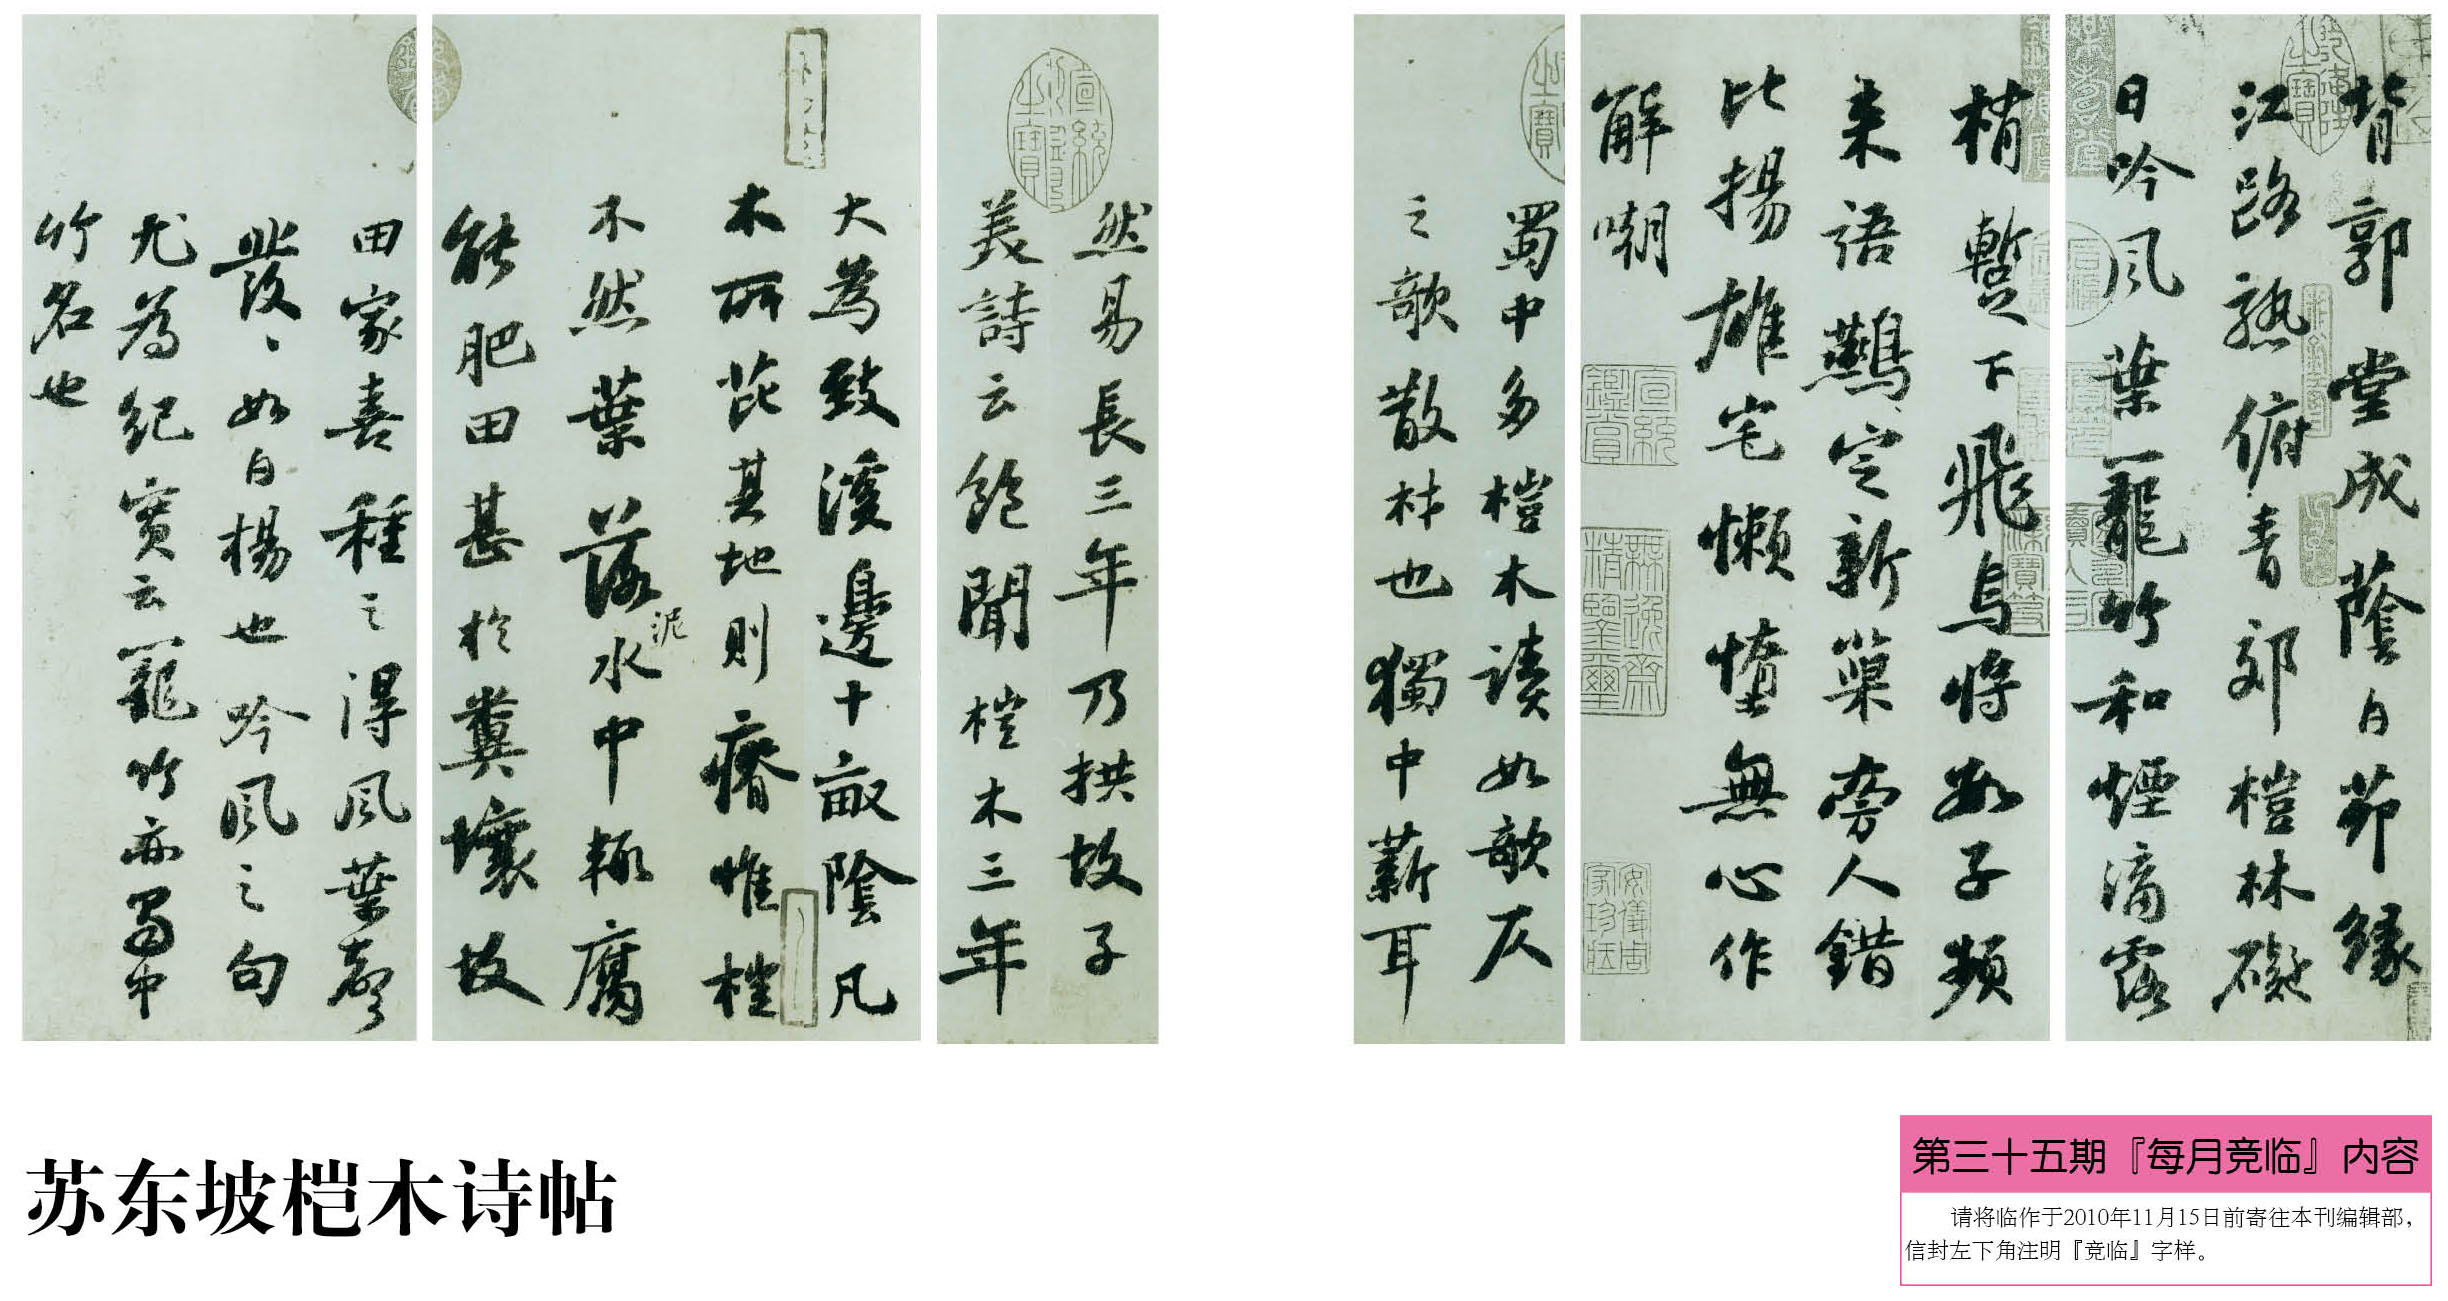 背郭堂成蔭白茆緣
江路熟俯青郊榿林礙
日吟風葉籠竹和煙滴露
梢暫下飛烏將數子頻
来語鷰定新巢旁人錯
比揚雄宅懶惰無心作
解嘲
蜀中多榿木讀如欹仄
之欹散材也獨中薪耳
然易長三年乃拱故子
美詩云飽聞榿木三年
大為致溪邊十畝陰凡
木所芘其地則瘠惟榿
不然葉落泥水中輙腐
能肥田甚於糞壤故
田家喜種之得風葉聲
發〻如白楊也吟風之句
尤為紀實云籠竹亦蜀中
竹名也
宣統鑑賞
無逸齋精鑒璽
安儀周家珍藏
宣統御覽之寶
苏东坡桤木诗帖
第三十五期『每月竞临』内容
请将临作于2010年11月15日前寄往本刊编辑部，
信封左下角注明『竞临』字样。